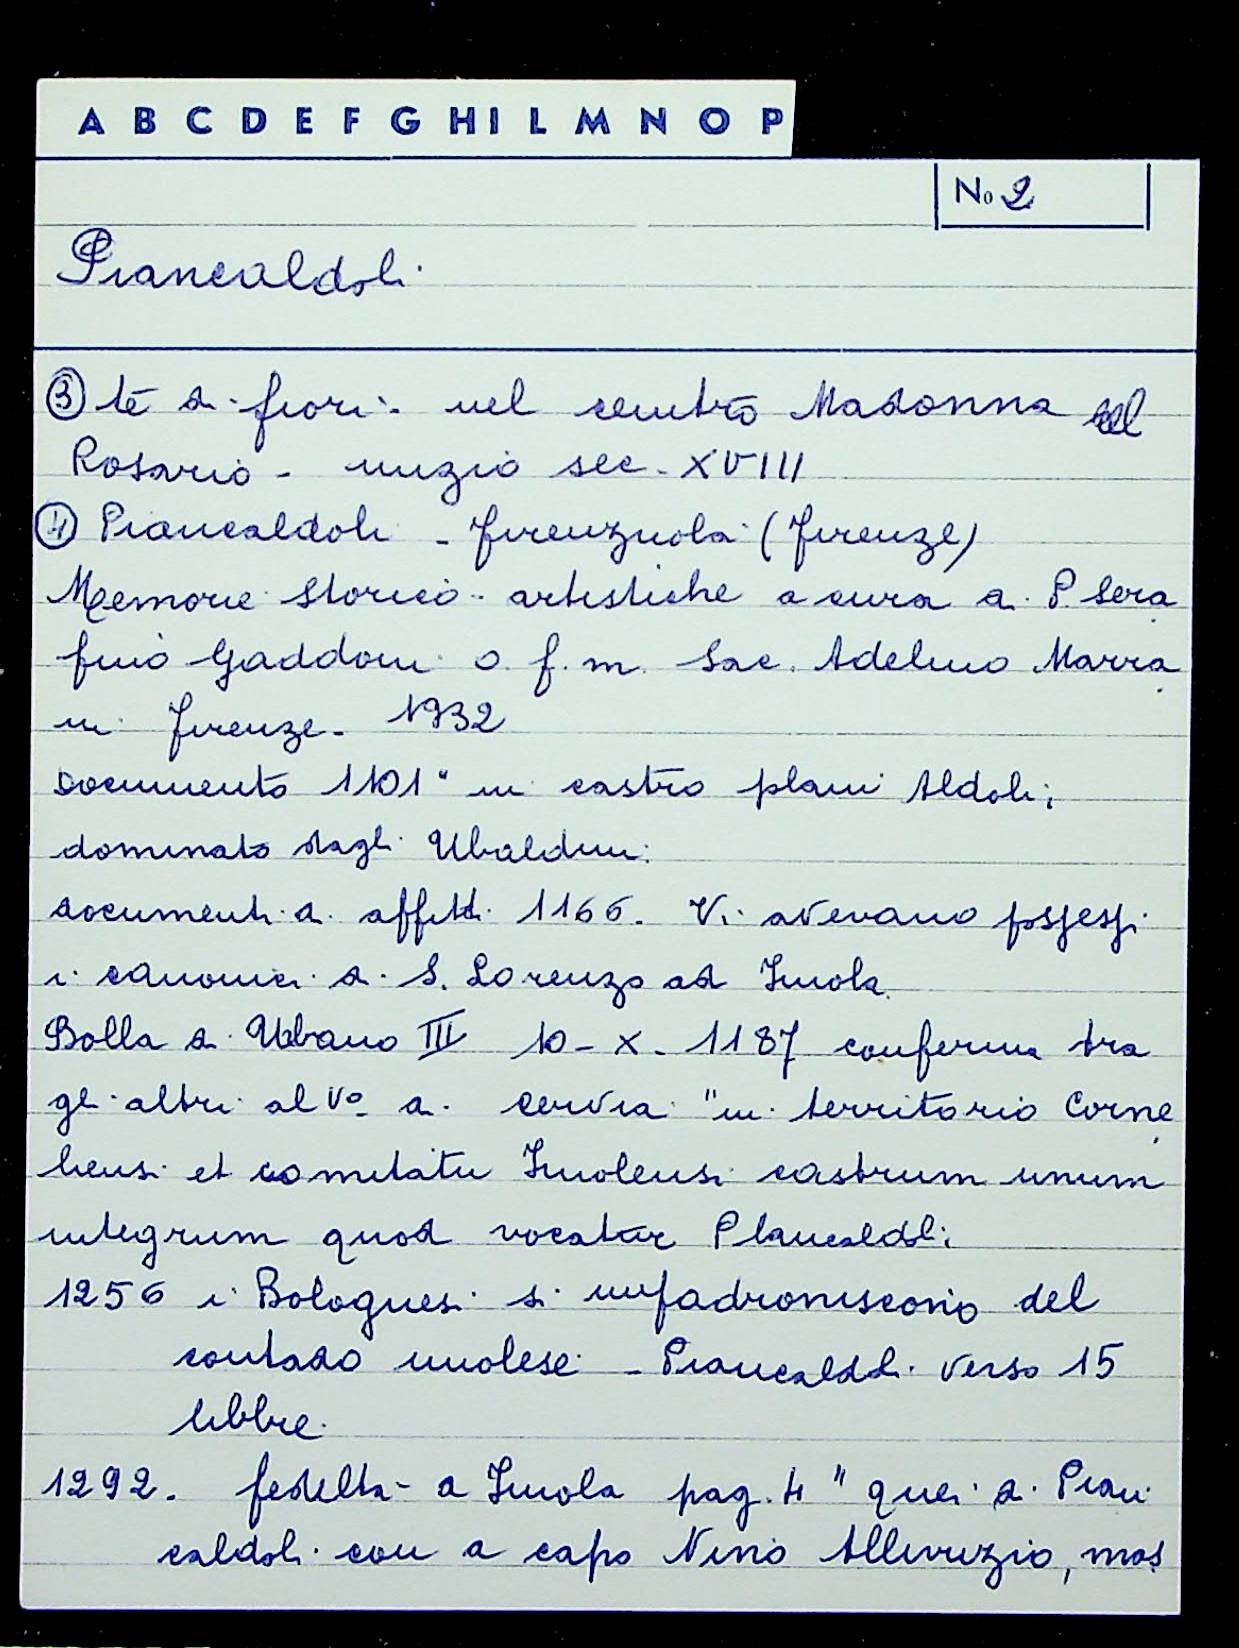 A B C D E F G H I L M N O P
No 2
Piancaldoli
③ te di fiori. nel centro Madonna del
Rosario - inizio sec. XVIII
④ Piancaldoli - Firenzuola (Firenze)
Memorie storico-artistiche a cura di P. Sera
fino Gaddoni o. f. m. Sac. Adelmo Marra
ni Firenze. 1932
documento 1101 " in castro plani Aldoli;
dominato dagli Ubaldini.
documenti di affitti 1166. Vi avevano possessi
i canonici di S. Lorenzo ad Imola.
Bolla di Urbano III 10-X-1187 conferma tra
gli altri al Vo di Cervia "in territorio Corne
liensi et comitatu Imolensi castrum unum
integrum quod vocatur Plancaldoli;
1256 i Bolognesi si impadroniscono del
contado imolese - Piancaldoli verso 15
libbre.
1292. fedeltà a Imola pag. 4 " quei di Pian
caldoli con a capo Nino Allivuzio, mos